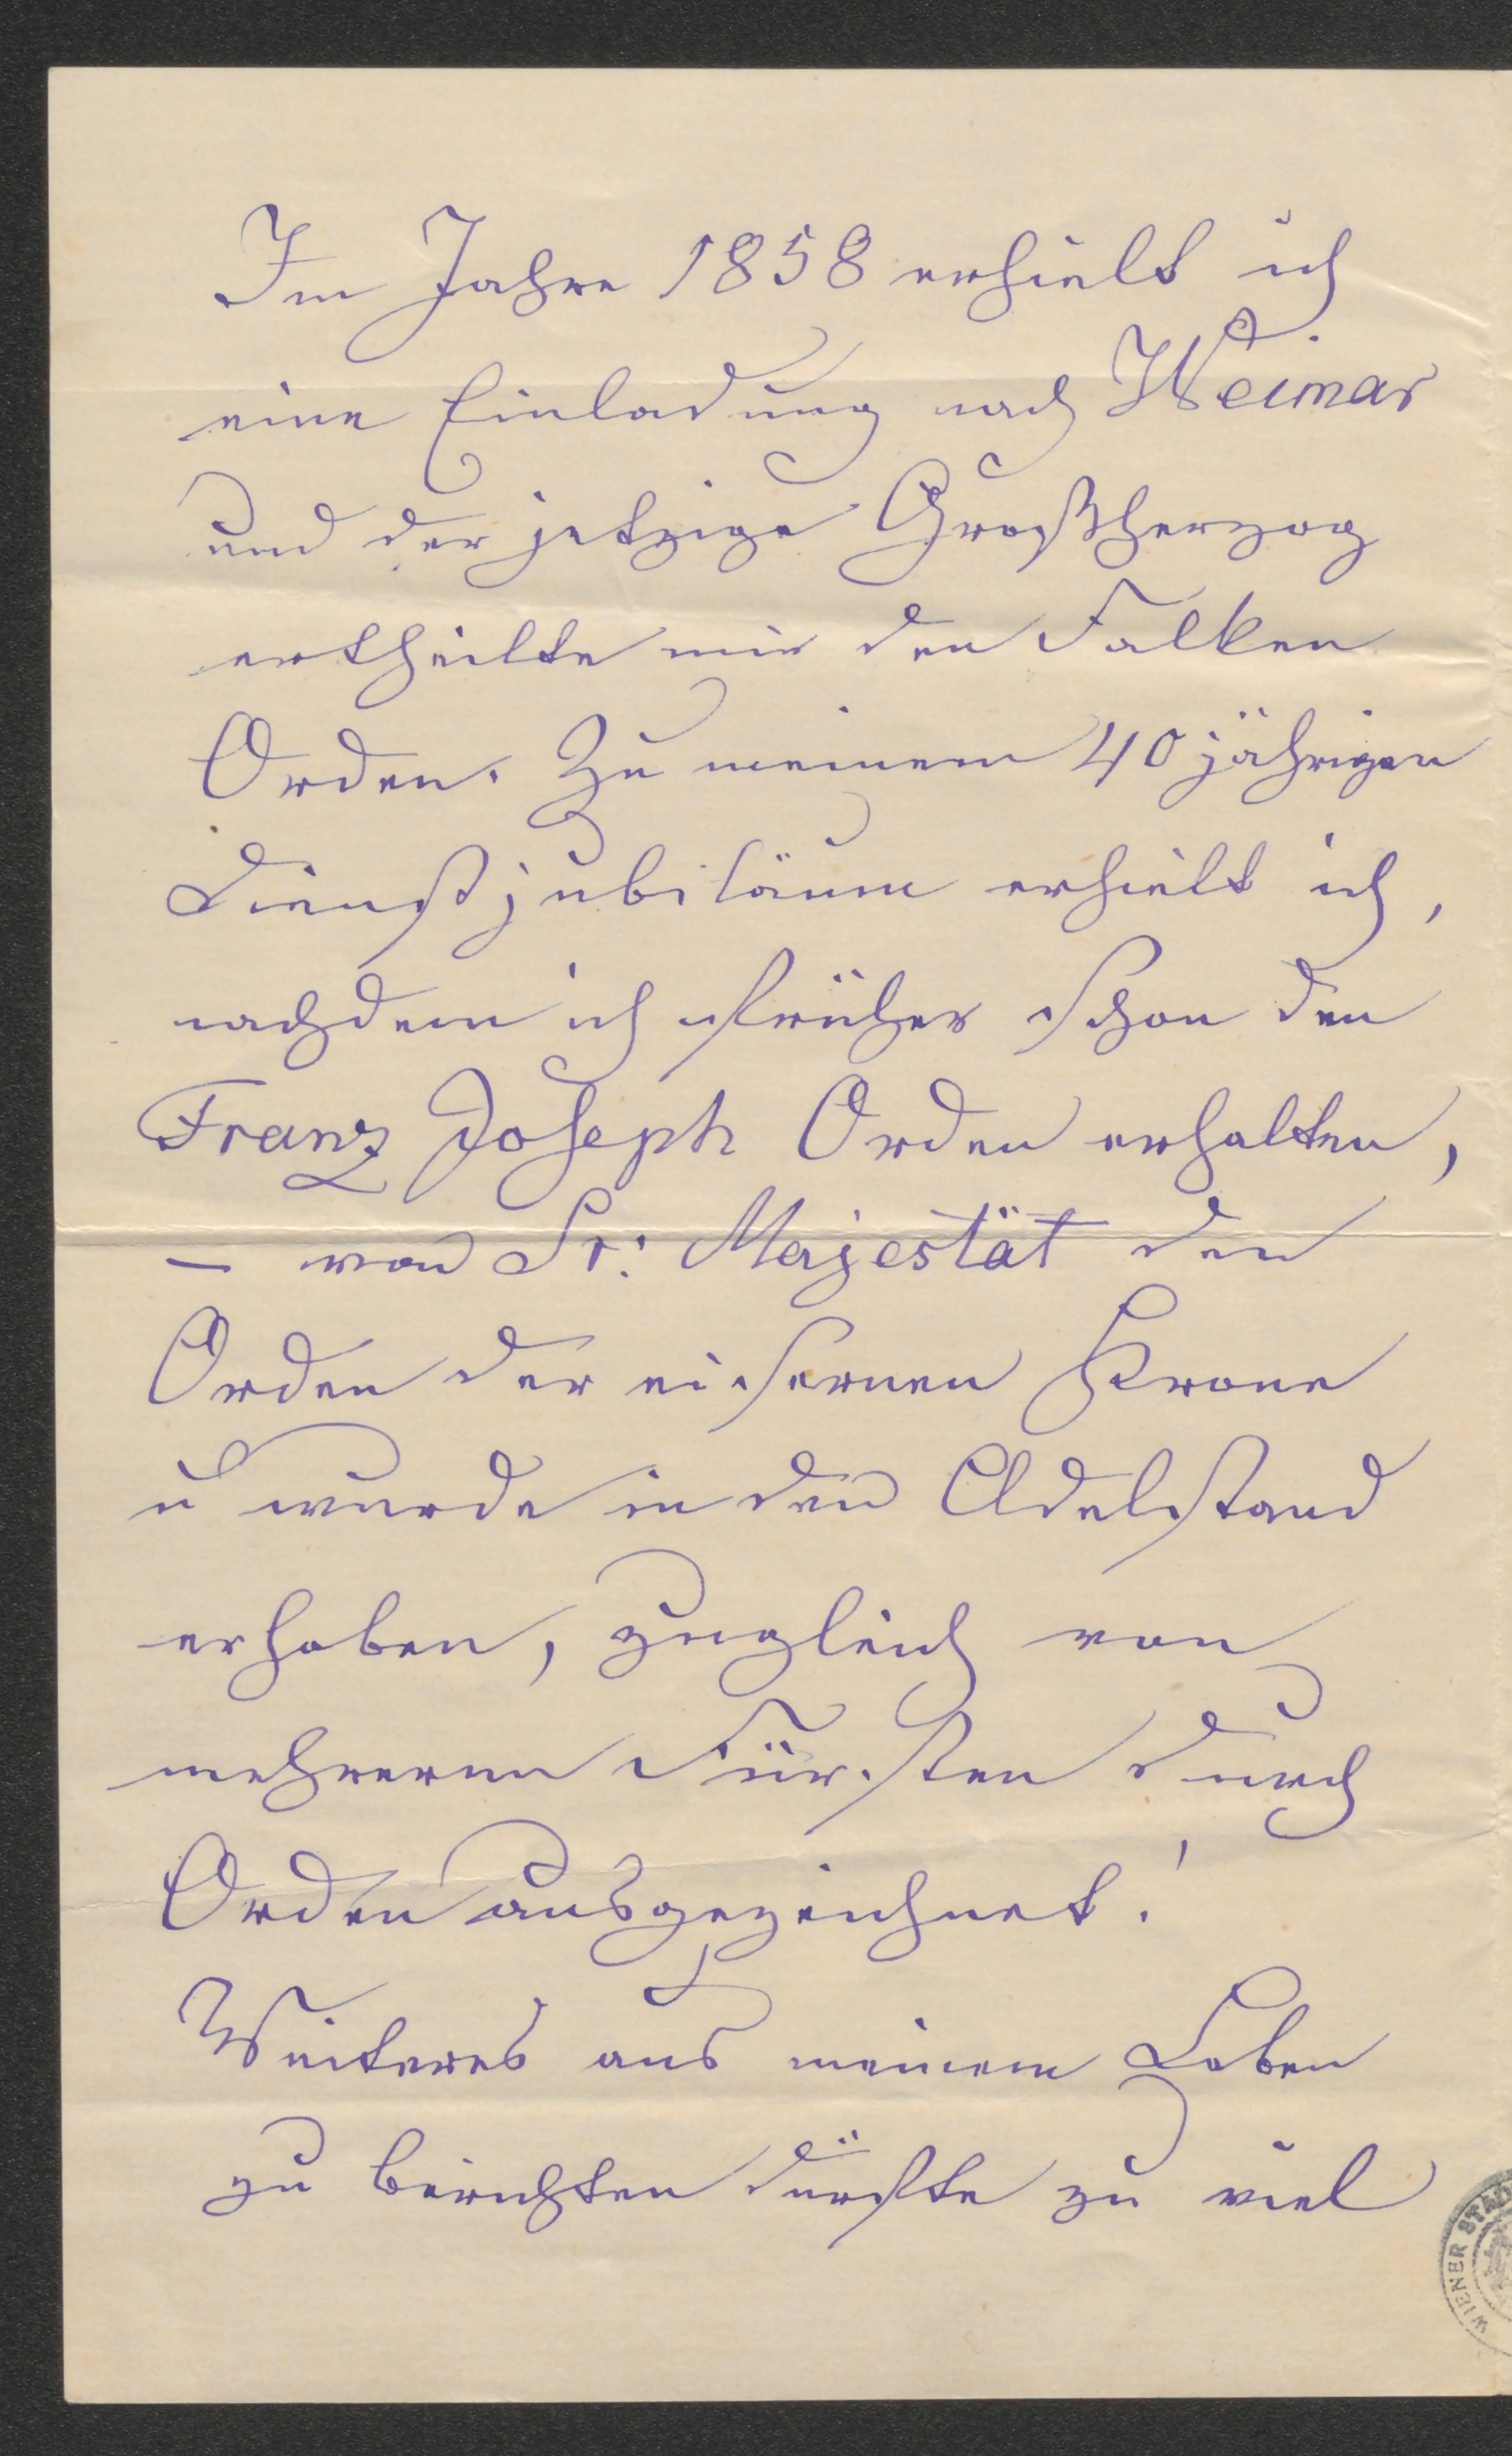 Im Jahre 1858 erhielt ich
eine Einladung nach Weimar
und der jetzige Großherzog
ertheilte mir den Falken
Orden. Zu meinem 40jährigen
Dienstjubiläum erhielt ich,
nachdem ich früher schon den
Franz Joseph Orden erhalten,
– von Sr: Majestät den
Orden der eisernen Krone
u wurde in den Adelstand
erhoben, zugleich von
mehreren Fürsten durch
Orden ausgezeichnet!
Weiteres aus meinem Leben
zu berichten dürfte zu viel
WIENER STAD